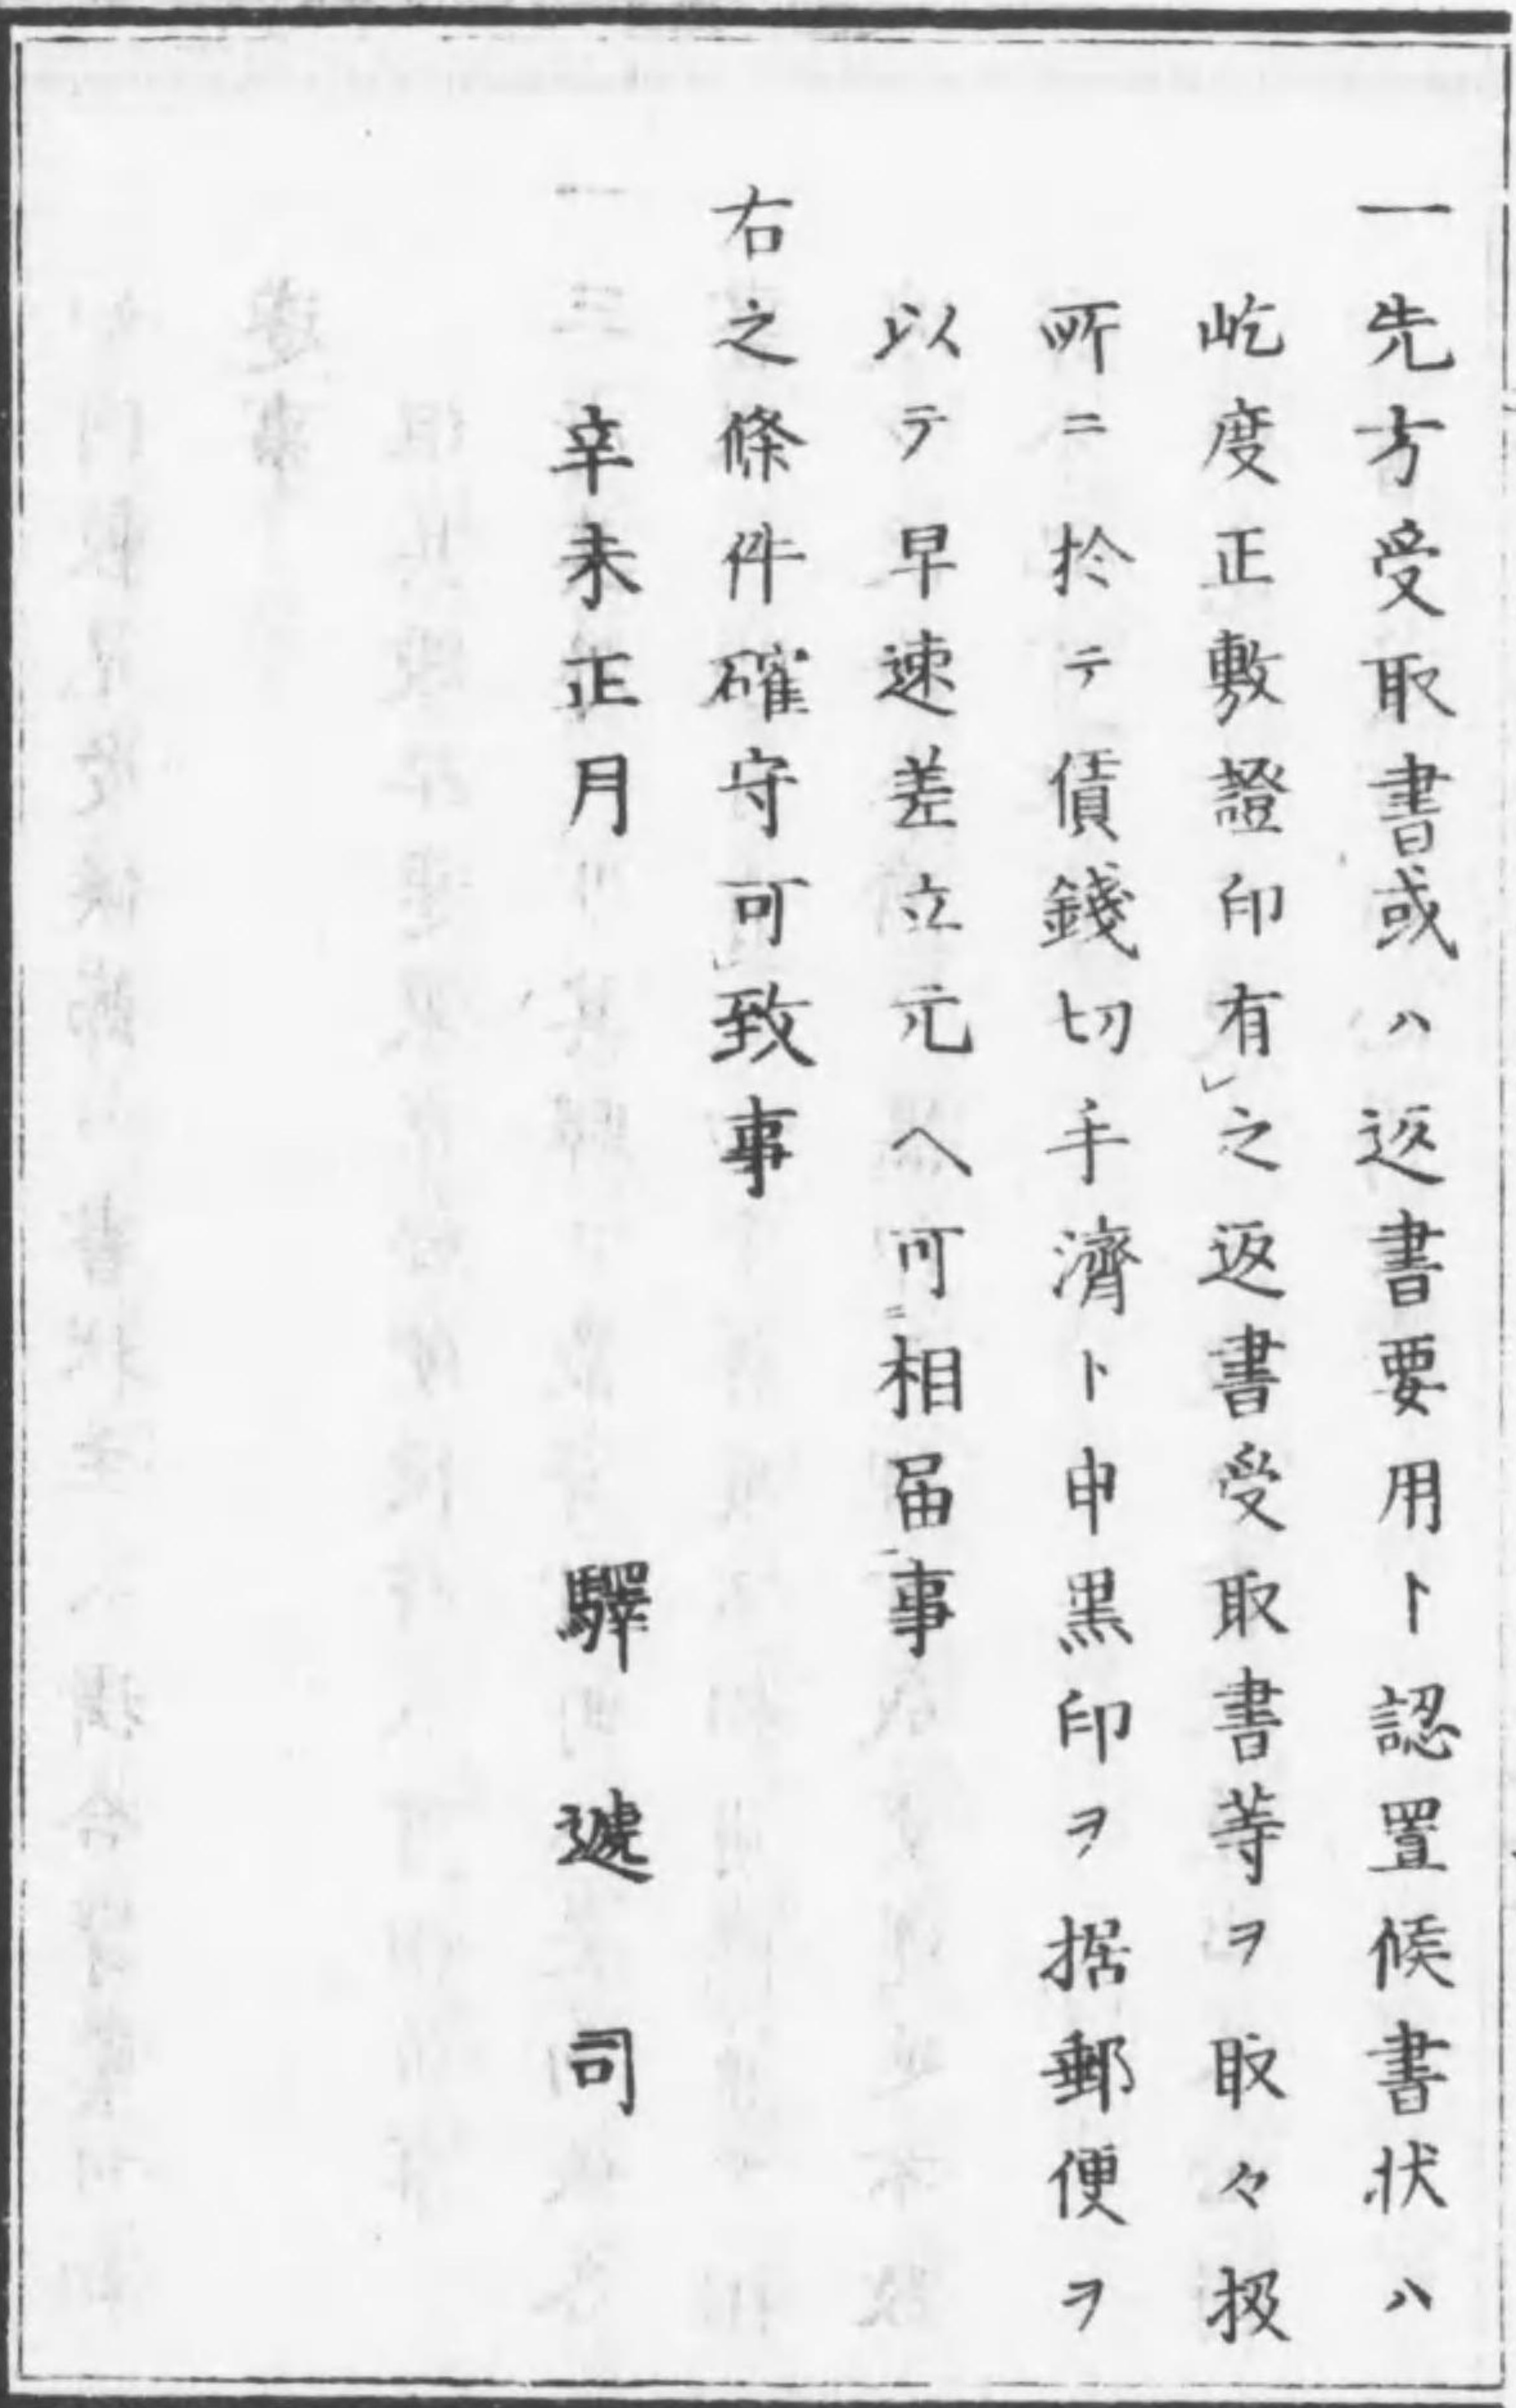 一先方受取書或ハ返書要用ト認置候書状ハ
屹度正敷證印有之返書受取書等ヲ取々扱
所ニ於テ債錢切手濟ト申黒印ヲ据郵便ヲ
以テ早速差立元ヘ可相届事
右之條件確守可致事
辛未正月
驛遞司